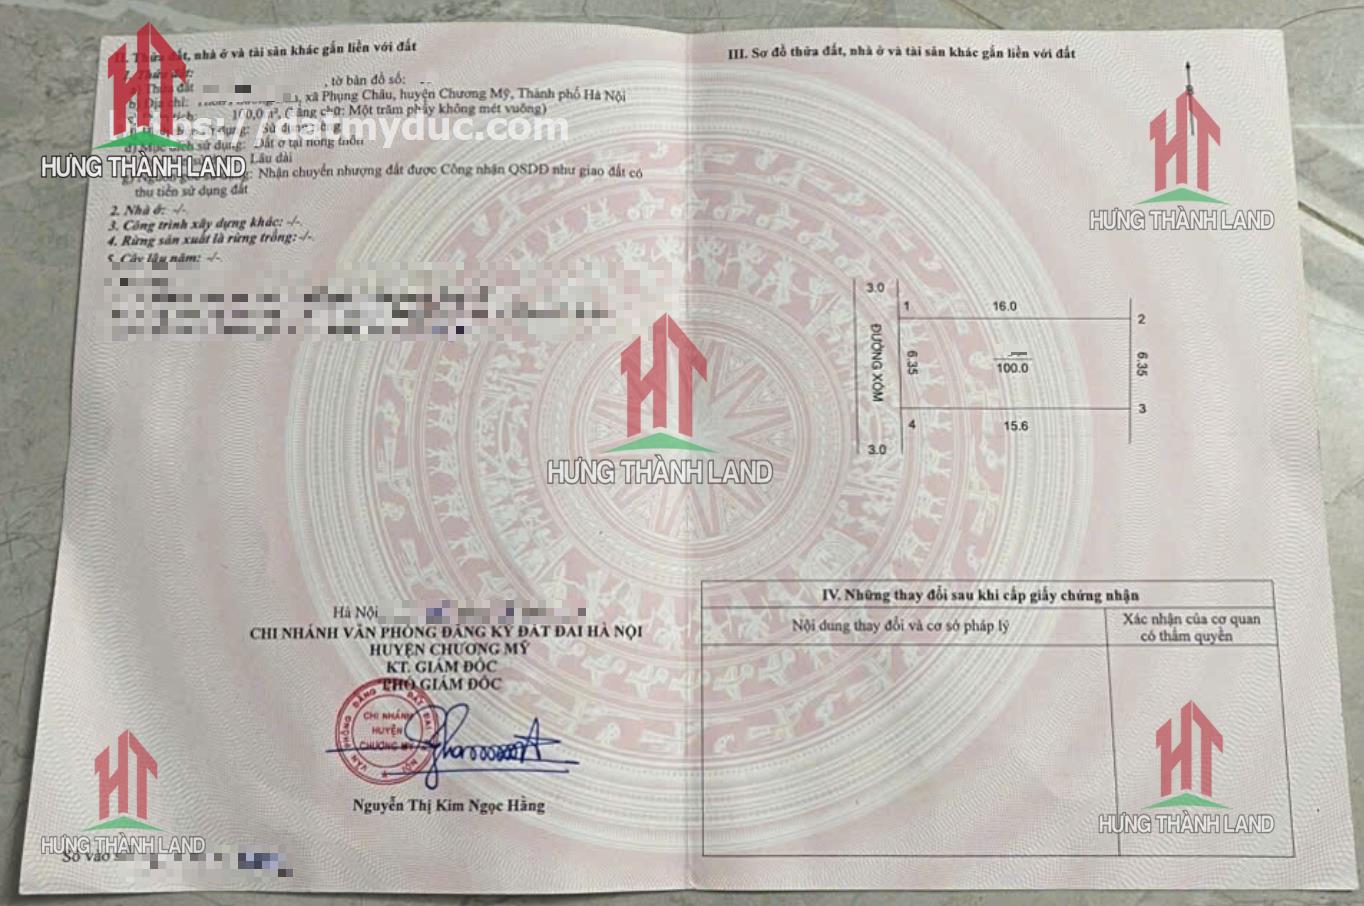 II. Thửa đất, nhà ở và tài sản khác gắn liền với đất
1. Thửa đất:
a) Thửa đất , tờ bản đồ số:
b) Địa chỉ: , xã Phụng Châu, huyện Chương Mỹ, Thành phố Hà Nội
100,0 m², (Bằng chữ: Một trăm phẩy không mét vuông)
https://datmyduc.com
dụng: Sử dụng riêng
đ) Mục đích sử dụng: Đất ở tại nông thôn
Lâu dài
HƯNG THÀNH LAND
Nhận chuyển nhượng đất được Công nhận QSDĐ như giao đất có
thu tiền sử dụng đất
2. Nhà ở: -/-.
3. Công trình xây dựng khác: -/-.
4. Rừng sản xuất là rừng trồng: -/-.
5. Cây lâu năm: -/-.
Hà Nội
CHI NHÁNH VĂN PHÒNG ĐĂNG KÝ ĐẤT ĐAI HÀ NỘI
HUYỆN CHƯƠNG MỸ
KT. GIÁM ĐỐC
PHÓ GIÁM ĐỐC
VĂN PHÒNG ĐĂNG KÝ ĐẤT ĐAI HÀ NỘI
CHI NHÁNH
HUYỆN
CHƯƠNG MỸ
Nguyễn Thị Kim Ngọc Hằng
HƯNG THÀNH LAND
Số vào
HƯNG THÀNH LAND
III. Sơ đồ thửa đất, nhà ở và tài sản khác gắn liền với đất
B
HƯNG THÀNH LAND
3.0
1
16.0
2
ĐƯỜNG XÓM
6.35
100.0
6.35
3
4
15.6
3.0
IV. Những thay đổi sau khi cấp giấy chứng nhận
Nội dung thay đổi và cơ sở pháp lý
Xác nhận của cơ quan
có thẩm quyền
HƯNG THÀNH LAND